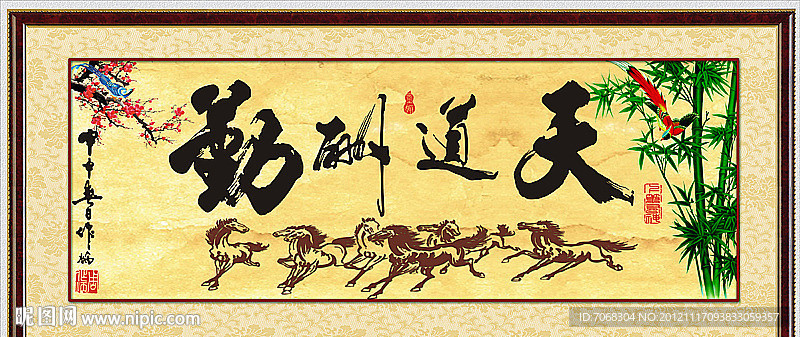 天道酬勤
昵图网 www.nipic.com
ID:7068304 NO:20121117093833059357